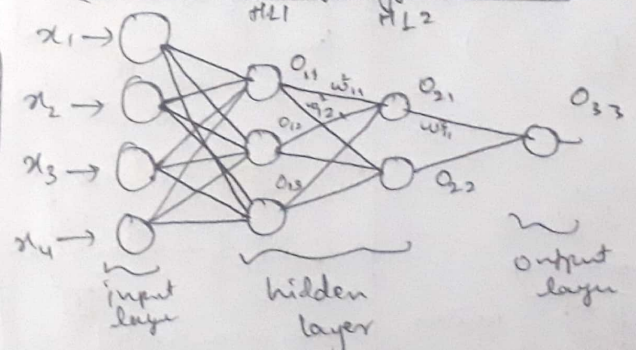 HL1 HL2
x1 →
x2 →
x3 →
x4 →
O11
O12
O13
w²11
O21
O22
O33
input
layer
hidden
layer
output
layer